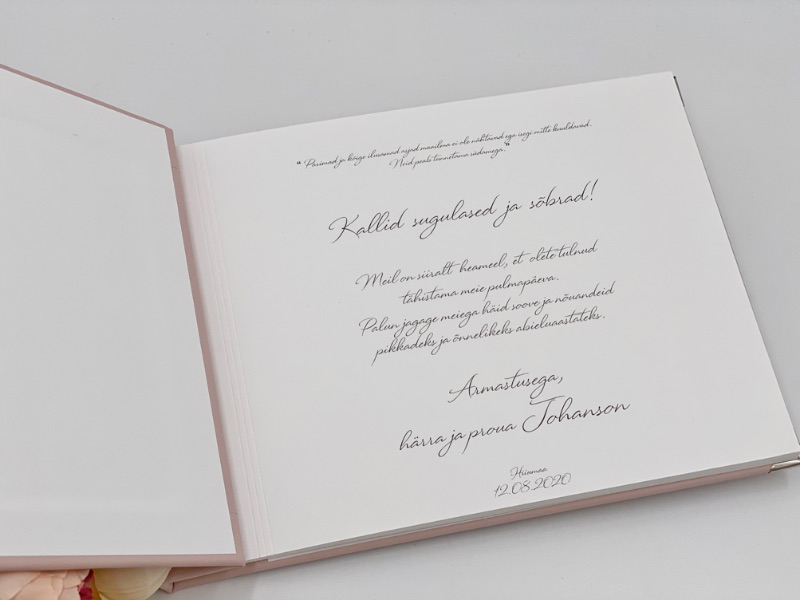 "Parimad ja kõige ilusamad asjad maailma ei ole nähtavad ega isegi mitte kuuldavad.
Neid peab tunnetama südamega."
Kallid sugulased ja sõbrad!
Meil on siiralt heameel, et olete tulnud
tähistama meie pulmapäeva.
Palun jagage meiega häid soove ja nõuandeid
pikkadeks ja õnnelikeks abieluaastateks.
Armastusega,
härra ja proua Johanson
Hiiumaa
12.08.2020